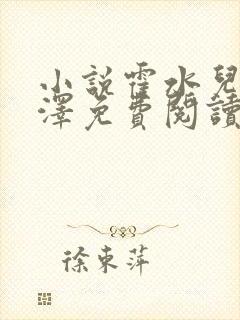 小說霍水兒
澤免費閱讀
徐東萍